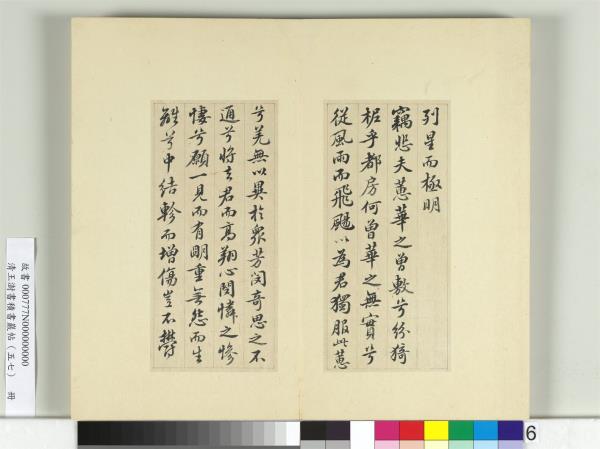 列星而極明
竊悲夫蕙華之曾敷兮紛猗
柅乎都房何曾華之無實兮
從風雨而飛颺以為君獨服此蕙
兮羌無以異於眾芳閔奇思之不
通兮將去君而高翔心閔憐之慘
悽兮願一見而有明重無怨而生
離兮中結軫而增傷豈不鬱
故書 000777N000000000
清王澍書積書巖帖(五七) 冊
6